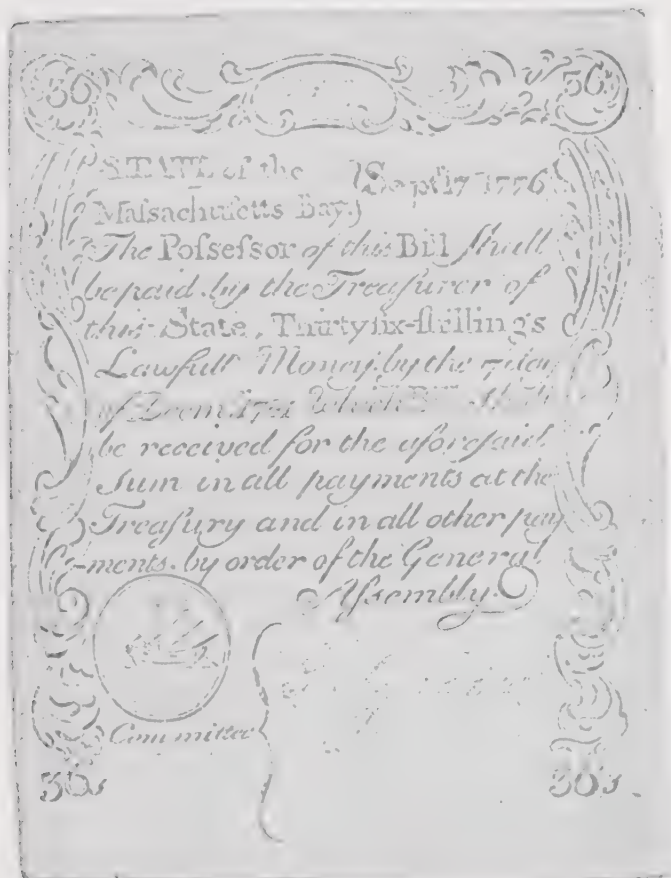 36 36
STATE of the } Sept. 17 1776
Maſsachuſetts Bay.}
The Poſseſsor of this Bill ſhall
be paid by the Treaſurer of
this State, Thirtyſix-ſhillings
Lawfull Money by the 7 day
of Decem.
be received for the aforeſaid
Sum in all payments at the
Treaſury and in all other pay
-ments. by order of the General
Aſsembly.
Committee
36s 36s